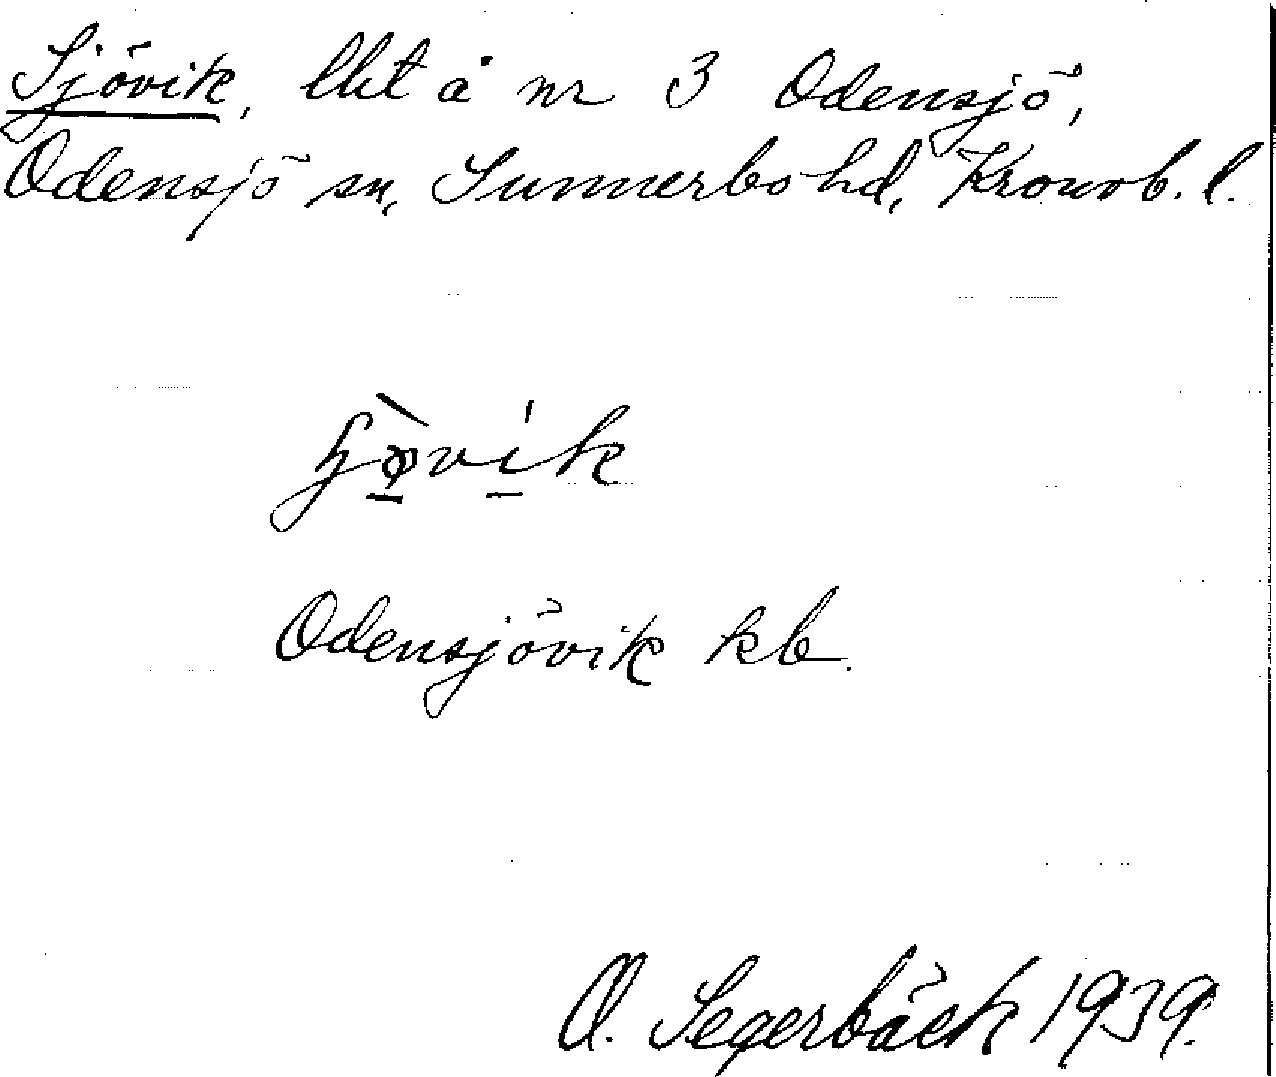 Sjövik, lht å nr 3 Odensjö,
Odensjö sn, Sunnerbo hd, Kronob. l.
ɧø̀vík
Odensjövik kb.
O. Segerbäck 1939.